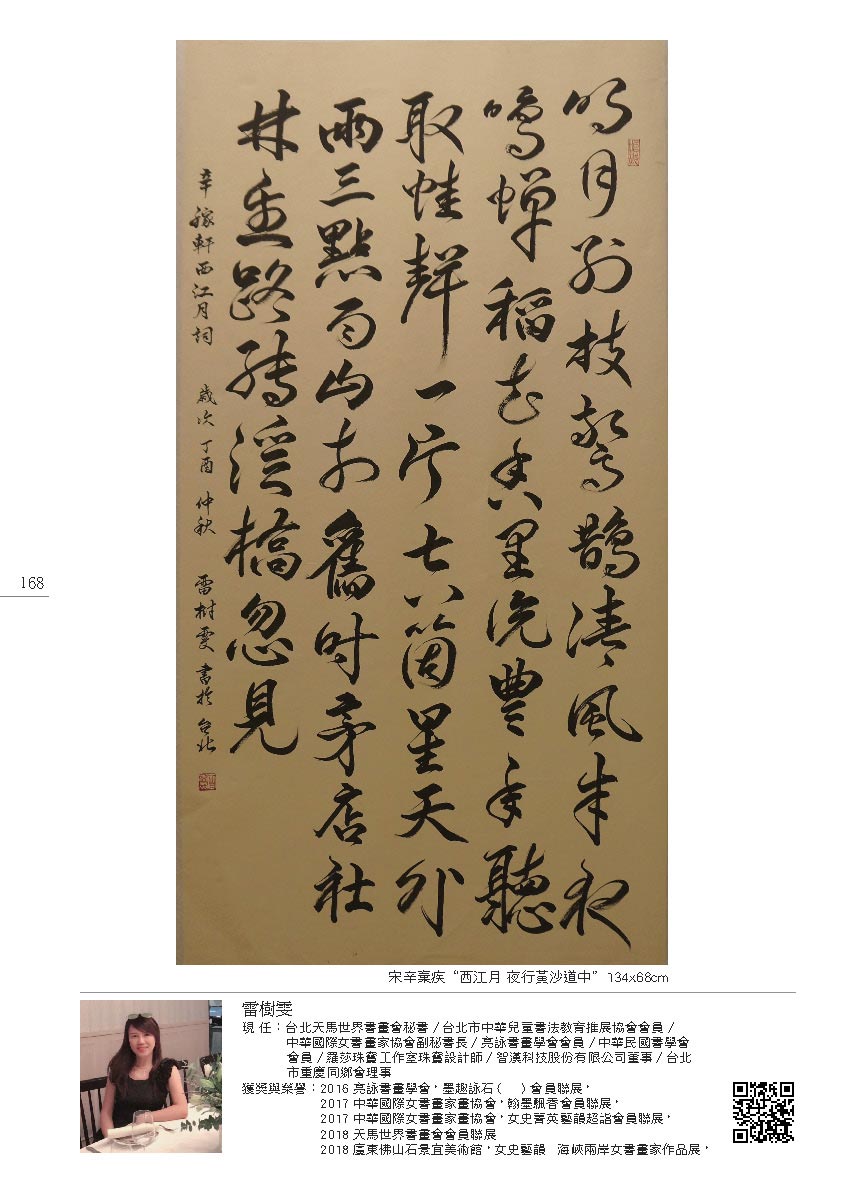 明月別枝驚鵲清風半夜
鳴蟬稻花香里說豐年聽
取蛙聲一片七八箇星天外
兩三點雨山前舊時茅店社
林邊路轉溪橋忽見
辛稼軒西江月詞 歲次丁酉 仲秋 雷樹雯書於台北
168
宋辛棄疾“西江月 夜行黃沙道中”134x68cm
雷樹雯
現 任：台北天馬世界書畫會秘書／台北市中華兒童書法教育推展協會會員／
中華國際女書畫家協會副秘書長／亮詠書畫學會會員／中華民國書學會
會員／羅莎珠寶工作室珠寶設計師／智漢科技股份有限公司董事／台北
市重慶同鄉會理事
獲獎與榮譽：2016 亮詠書畫學會，墨趣詠石（　）會員聯展，
2017 中華國際女書畫家畫協會，翰墨飄香會員聯展，
2017 中華國際女書畫家畫協會，女史菁英藝韻超詣會員聯展，
2018 天馬世界書畫會會員聯展
2018 廣東佛山石景宜美術館，女史藝韻　海峽兩岸女書畫家作品展，